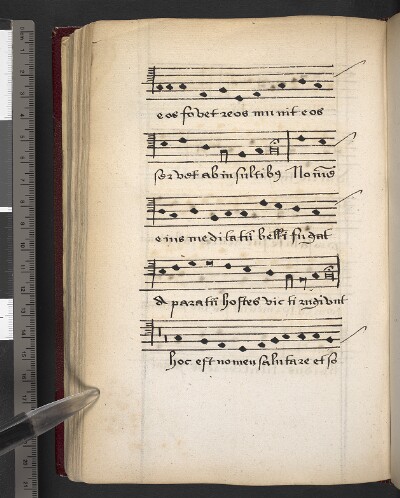 e os fovet re os mu nit e os
ser vet ab in sultibꝯ No mē
e ius me di tatū bellū fu gat
& paratū hostes vic ti rugi unt
hoc est no men salu tare et so